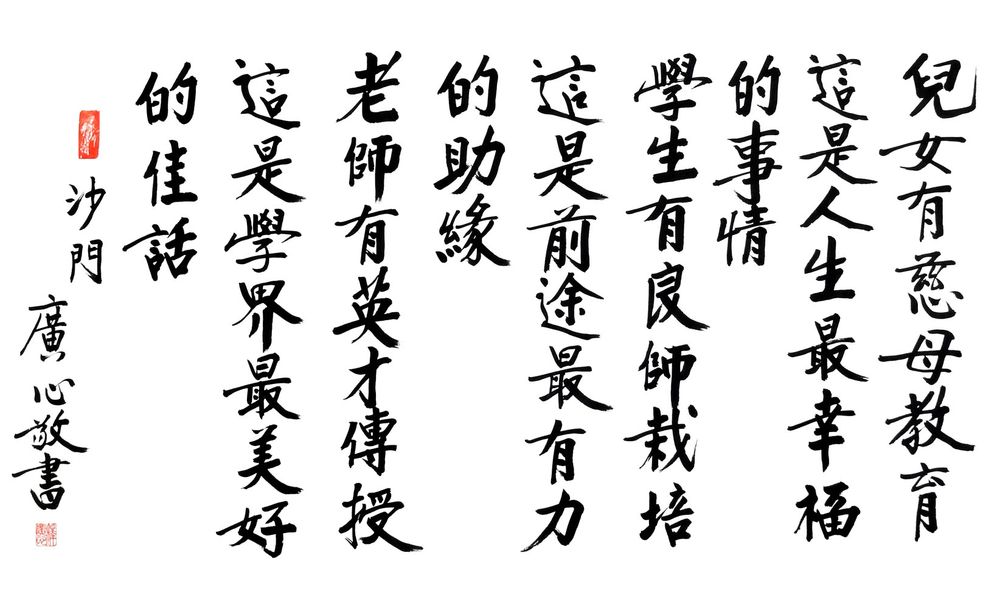 兒女有慈母教育
這是人生最幸福
的事情
學生有良師栽培
這是前途最有力
的助緣
老師有英才傳授
這是學界最美好
的佳話
沙門
廣心敬書